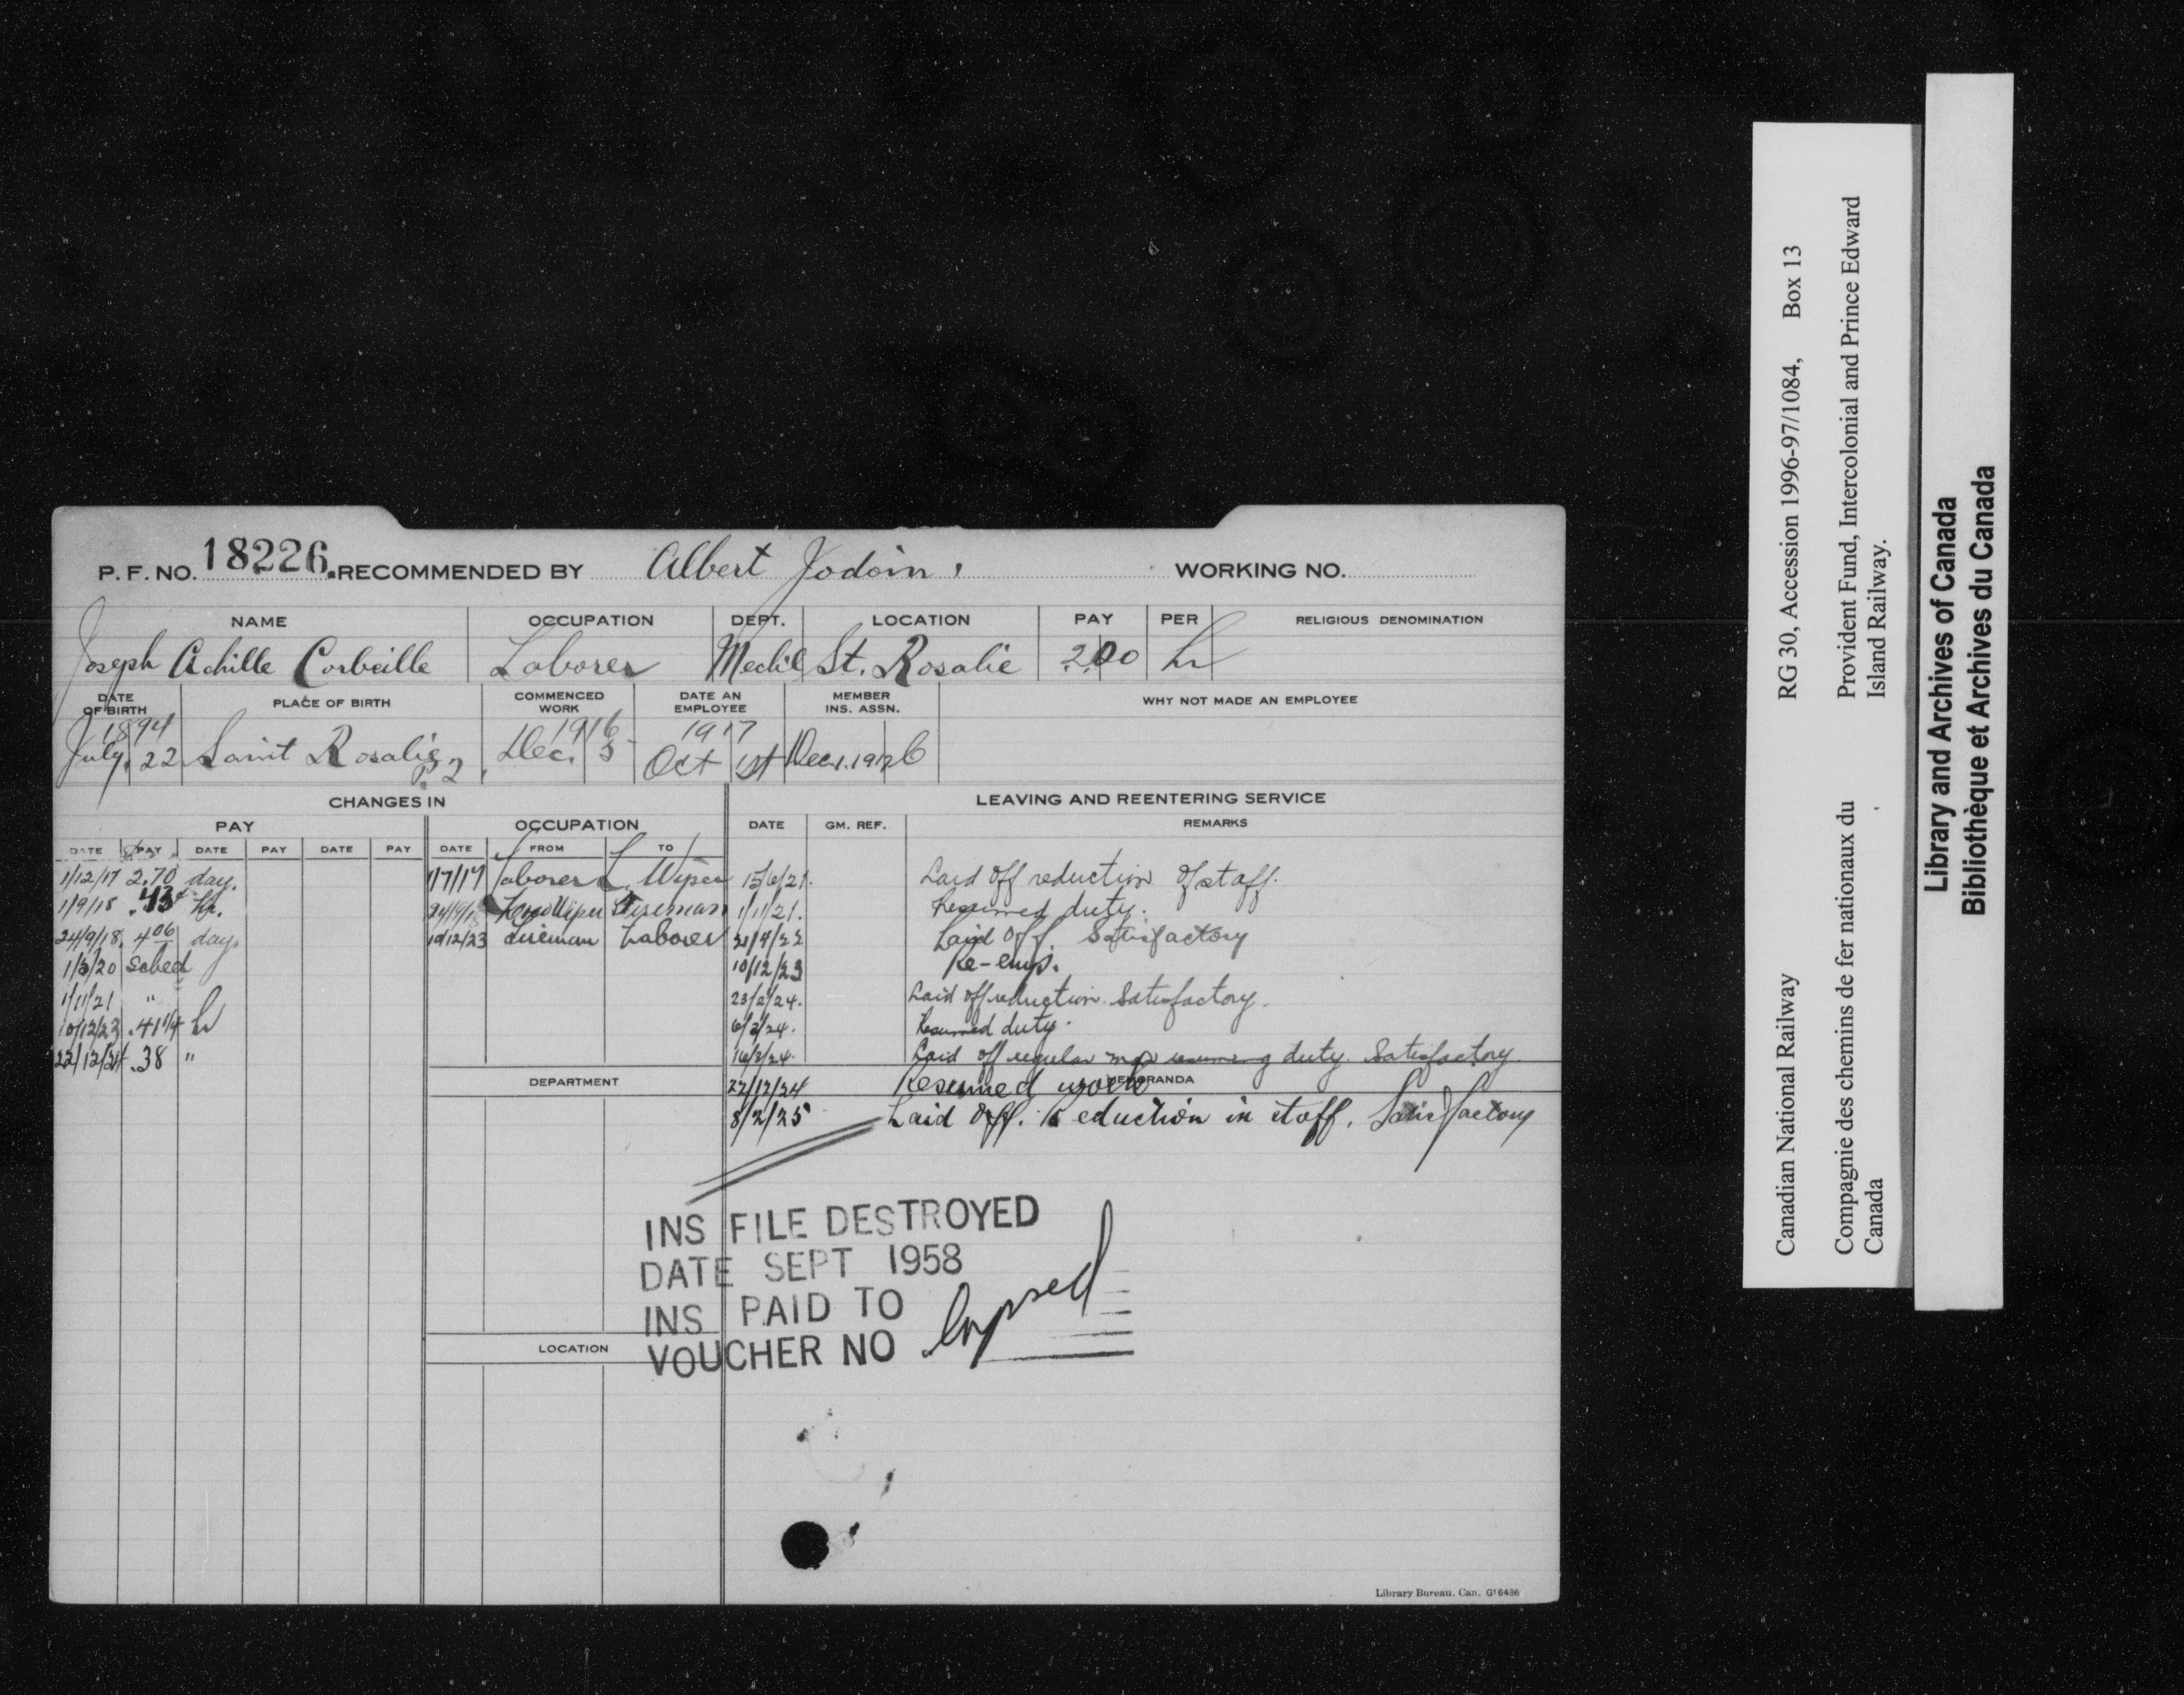 P. F. NO. 18226. RECOMMENDED BY Albert Jodoin. WORKING NO.
NAME OCCUPATION DEPT. LOCATION PAY PER RELIGIOUS DENOMINATION
Joseph Achille Corbeille Laborer Mech'l St. Rosalie 2.00
DATE OF BIRTH PLACE OF BIRTH COMMENCED WORK DATE AN EMPLOYEE MEMBER INS. ASSN. WHY NOT MADE AN EMPLOYEE
1894 1916 1917
July 22 Saint Rosalie Dec. 5 Oct 1st Dec. 1. 1926
P2
CHANGES IN LEAVING AND REENTERING SERVICE
PAY OCCUPATION DATE GM. REF. REMARKS
DATE PAY DATE PAY DATE PAY DATE FROM TO
1/12/17 2.70 day. 1/7/17 Laborer L. Wiper 15/6/21. Laid off reduction of staff.
1/9/18 .43 hr. 24/9/18 Wiper Fireman 1/11/21. Resumed duty.
24/9/18. 4 06 day. 10/12/23 Fireman Laborer 21/9/22 Laid Off. Satisfactory
1/5/20 sched 10/12/23 Re-emp.
1/11/21 " 23/2/24. Laid off reduction Satisfactory.
10/12/23 .41 1/4 hr 6/3/24. Resumed duty.
22/12/24 .38 " 16/3/24. Laid off regular man resuming duty. Satisfactory
DEPARTMENT 22/12/24 Resumed work MEMORANDA
8/2/25 Laid Off. Reduction in staff. Satisfactory
INS FILE DESTROYED
DATE SEPT 1958
INS PAID TO
VOUCHER NO lapsed
LOCATION
Library Bureau. Can. G¹6436
Canadian National Railway RG 30, Accession 1996-97/1084, Box 13
Compagnie des chemins de fer nationaux du Canada Provident Fund, Intercolonial and Prince Edward Island Railway.
Library and Archives of Canada
Bibliothèque et Archives du Canada